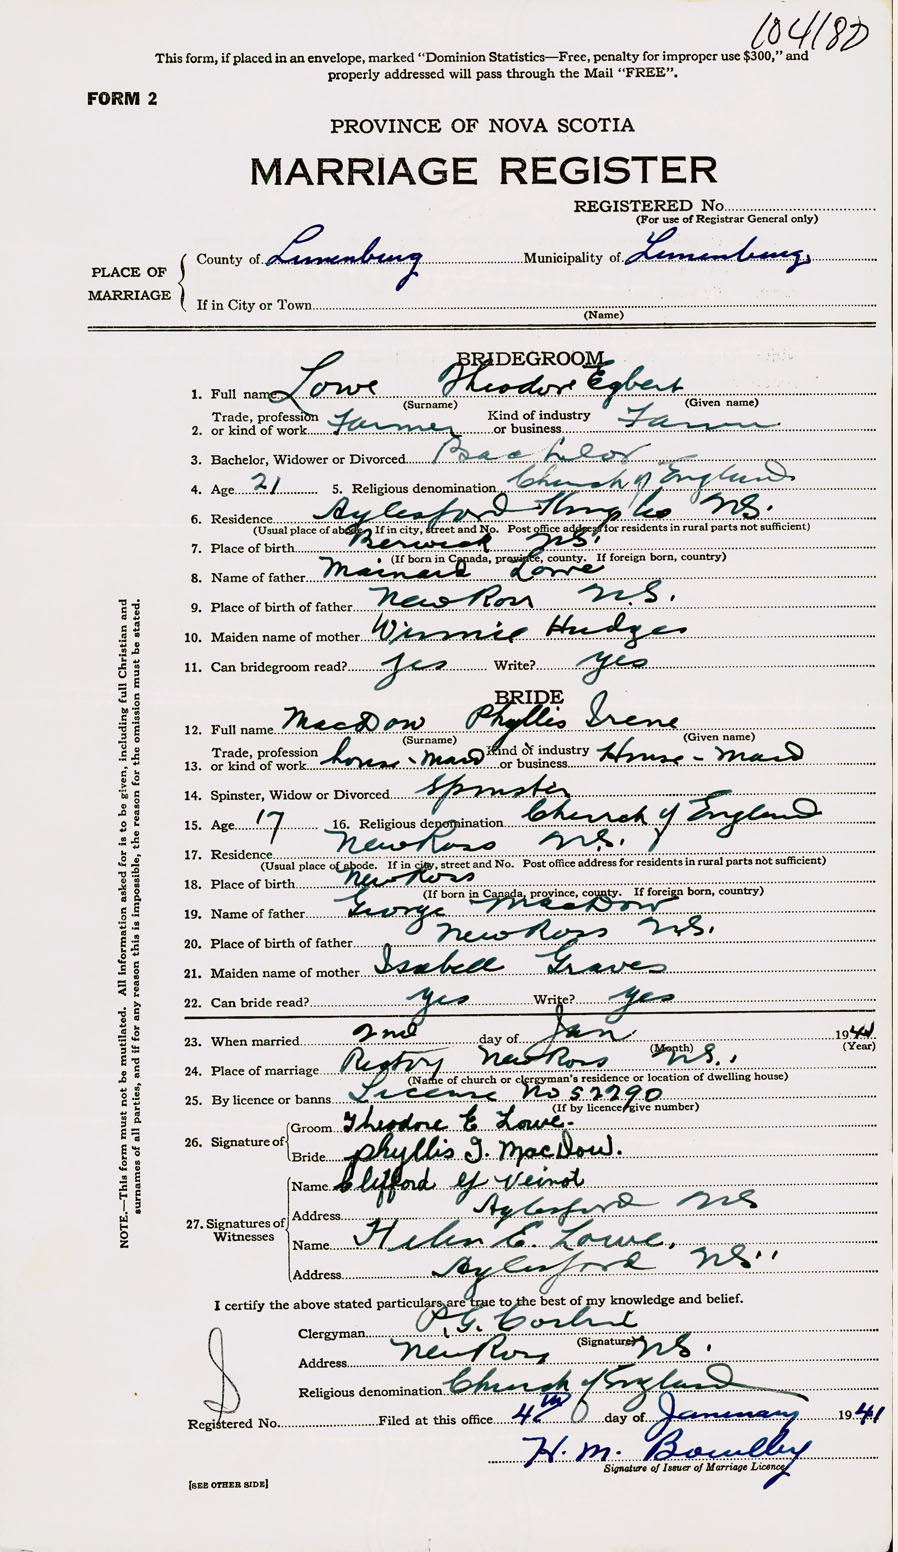 104180
This form, if placed in an envelope, marked "Dominion Statistics—Free, penalty for improper use $300," and
properly addressed will pass through the Mail "FREE".
FORM 2
PROVINCE OF NOVA SCOTIA
MARRIAGE REGISTER
REGISTERED No.
(For use of Registrar General only)
PLACE OF MARRIAGE
County of Lunenburg Municipality of Lunenburg
If in City or Town
(Name)
BRIDEGROOM
1. Full name Lowe Theodore Egbert
(Surname) (Given name)
2. Trade, profession or kind of work Farmer Kind of industry or business Farm
3. Bachelor, Widower or Divorced Bachelor
4. Age 21 5. Religious denomination Church of England
6. Residence Aylesford Kings Co N.S.
(Usual place of abode. If in city, street and No. Post office address for residents in rural parts not sufficient)
7. Place of birth Berwick N.S.
(If born in Canada, province, county. If foreign born, country)
8. Name of father Mainard Lowe
9. Place of birth of father New Ross N.S.
10. Maiden name of mother Winnie Hudges
11. Can bridegroom read? yes Write? yes
BRIDE
12. Full name MacDow Phyllis Irene
(Surname) (Given name)
13. Trade, profession or kind of work house-maid Kind of industry or business House-maid
14. Spinster, Widow or Divorced Spinster
15. Age 17 16. Religious denomination Church of England
17. Residence New Ross N.S.
(Usual place of abode. If in city, street and No. Post office address for residents in rural parts not sufficient)
18. Place of birth New Ross
(If born in Canada, province, county. If foreign born, country)
19. Name of father George MacDow
20. Place of birth of father New Ross N.S.
21. Maiden name of mother Isabell Graves
22. Can bride read? yes Write? yes
23. When married 2nd day of Jan 1941
(Month) (Year)
24. Place of marriage Rectory New Ross N.S.
(Name of church or clergyman's residence or location of dwelling house)
25. By licence or banns License No 52290
(If by licence give number)
26. Signature of
Groom Theodore E. Lowe.
Bride phyllis I. MacDow.
27. Signatures of Witnesses
Name Clifford Veinot
Address Aylesford N.S
Name Helen E. Lowe.
Address Aylesford N.S.
I certify the above stated particulars are true to the best of my knowledge and belief.
Clergyman P.G.
(Signature)
Address New Ross N.S.
Religious denomination Church of England
Registered No. Filed at this office 4th day of January 1941
H. M.
Signature of Issuer of Marriage Licence
[SEE OTHER SIDE]
NOTE.—This form must not be mutilated. All information asked for is to be given, including full Christian and
surnames of all parties, and if for any reason this is impossible, the reason for the omission must be stated.